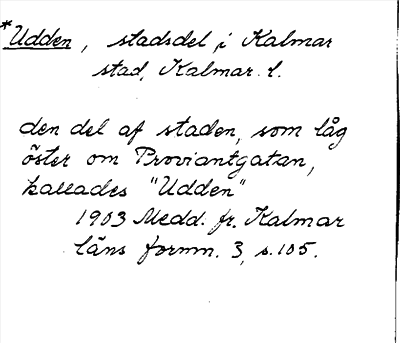 *Udden, stadsdel i Kalmar
stad, Kalmar l.
den del af staden, som låg
öster om Proviantgatan,
kallades "Udden"
1903 Medd. fr. Kalmar
läns fornm. 3, s. 105.